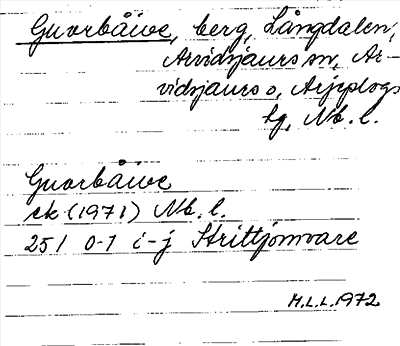 Guorbåive, berg, Långdalen,
Arvidsjaurs sn, Ar-
vidsjaurs o, Arjeplogs
tg, Nb. l.
Guorbåive
ek (1971) Nb. l.
25 I 0-1 i-j Strittjomvare
M.L.L. 1972